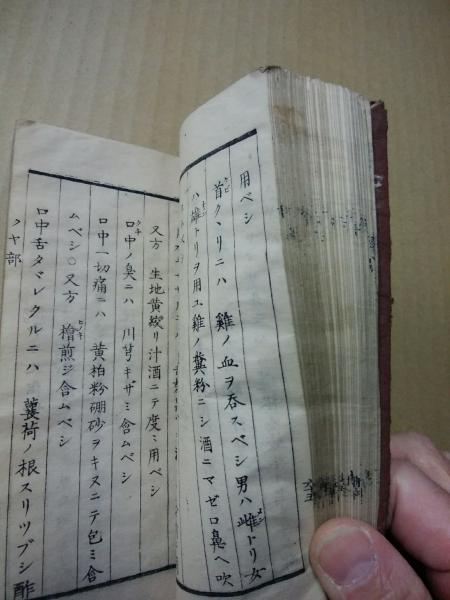 用ベシ
首クヽリニハ 雞ノ血ヲ呑スベシ男ハ雌ドリ女
ハ雄トリヲ用ユ雞ノ糞粉ニシ酒ニマゼ口鼻ヘ吹
又方 生地黄絞リ汁酒ニテ度々用ベシ
口中ノ臭ニハ 川芎キザミ含ムベシ
口中一切痛ニハ 黄柏粉硼砂ヲキヌニテ包ミ含
ムベシ○又方 檜煎ジ含ムベシ
口中舌タヾレクルニハ 蘘荷ノ根スリツブシ酢
クヤ部